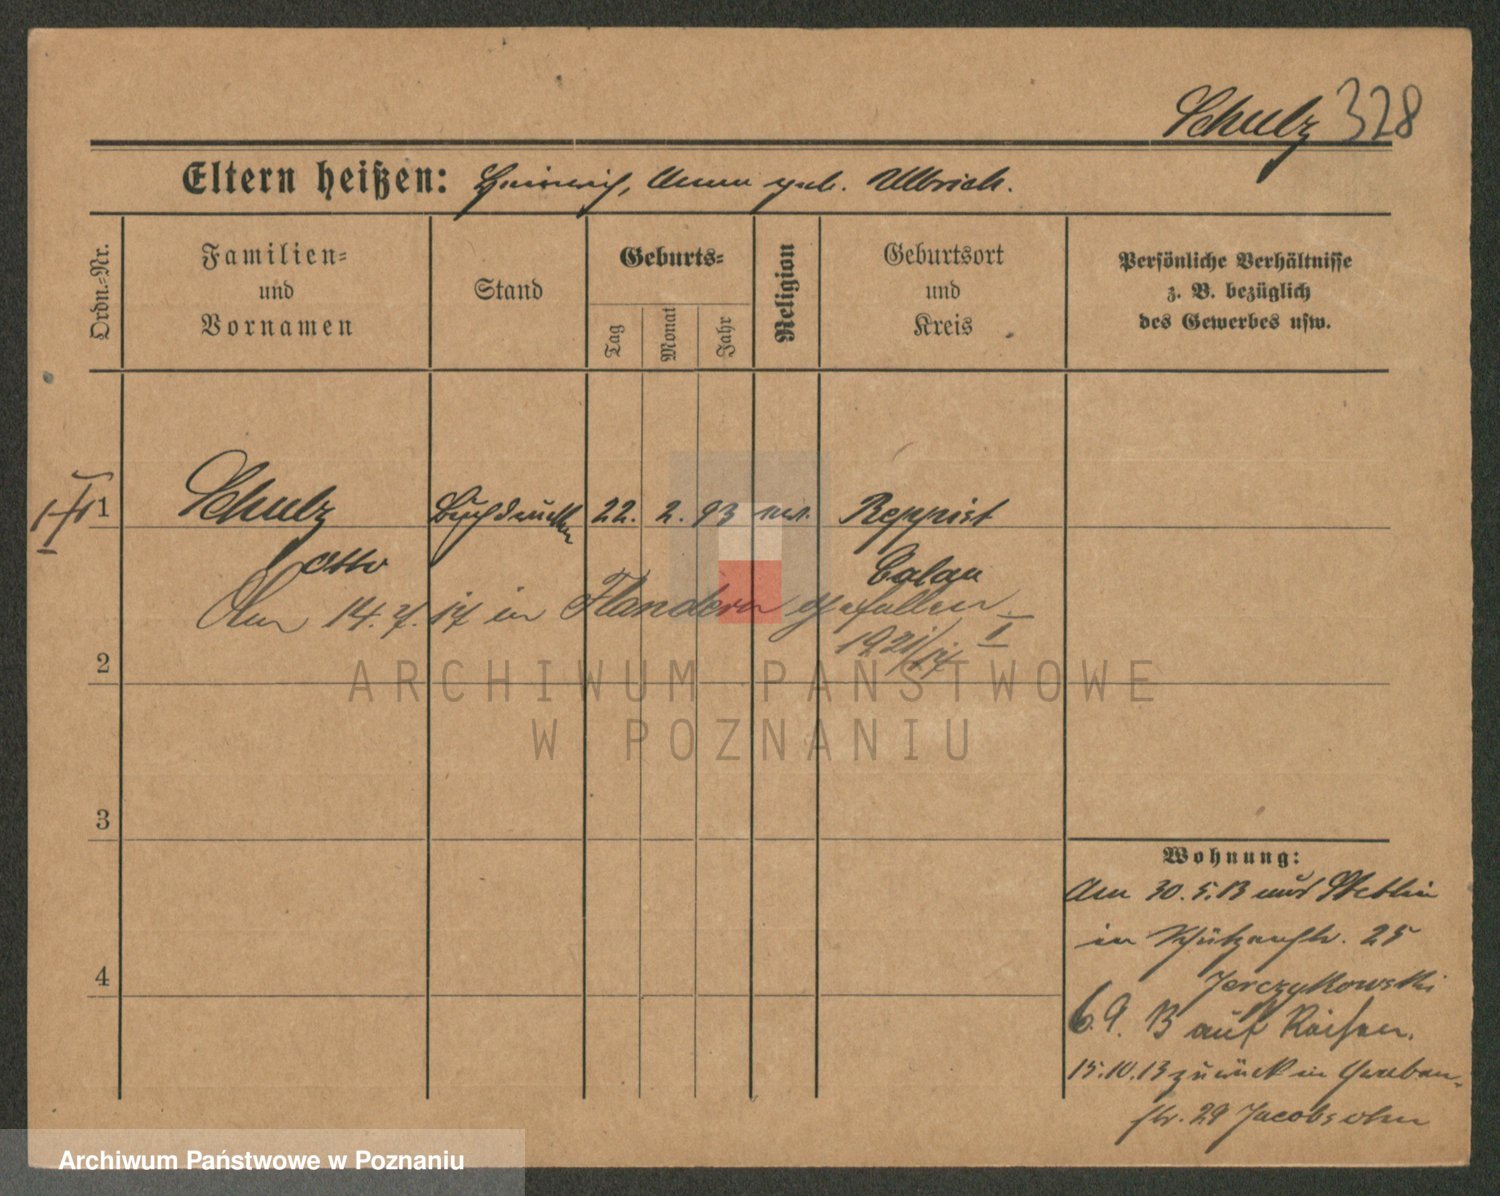 Schulz 328
Eltern heißen: Heinrich, Anna geb. Ullrich.
Ordn.-Nr.
Familien-
und
Vornamen
Stand
Geburts-
Tag
Monat
Jahr
Religion
Geburtsort
und
Kreis
Persönliche Verhältnisse
z. B. bezüglich
des Gewerbes usw.
1 Schulz Buchdrucker 22. 2. 93 ev. Reppist
Otto Calau
Am 14.7.17 in Flandern gefallen.
1921/17 I
2
ARCHIWUM PAŃSTWOWE
W POZNANIU
3
4
Wohnung:
Am 30.5.13 aus Stettin
in Schützenstr. 25
Jerczykowski
6.9.13 auf Reisen.
15.10.13 zurück in Graben-
str. 29 Jacobsohn
Archiwum Państwowe w Poznaniu